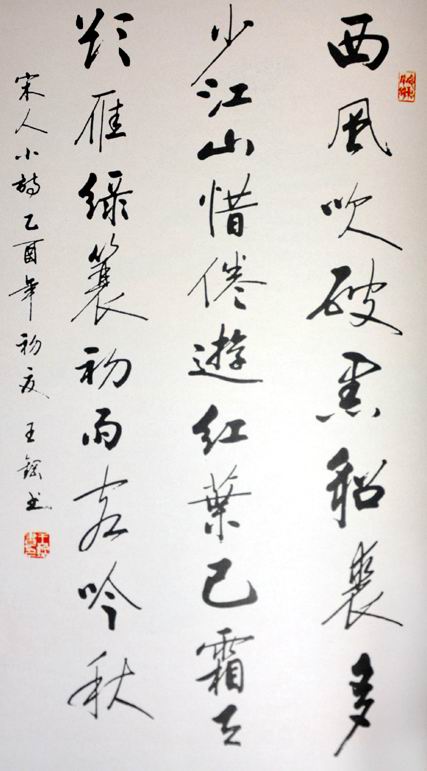 西風吹破黑貂裘多
少江山惜倦遊紅葉已霜天
欲雁綠簑初雨客吟秋
宋人小詩乙酉年初夏 王書